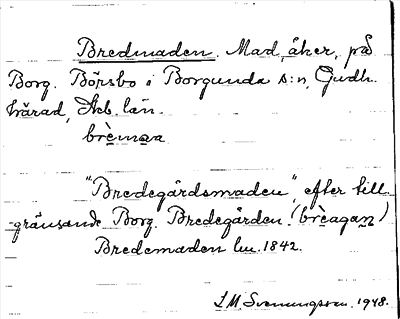 Bredmaden. Mad, åker, på
Borg. Börsbo i Borgunda s:n, Gudh.
härad, Skb. län.
brèmaa
"Bredegårdsmaden", efter till-
gränsande Borg. Bredegården. (brèagaṉ)
Bredemaden lm. 1842.
L. M. Svenungsson. 1948.